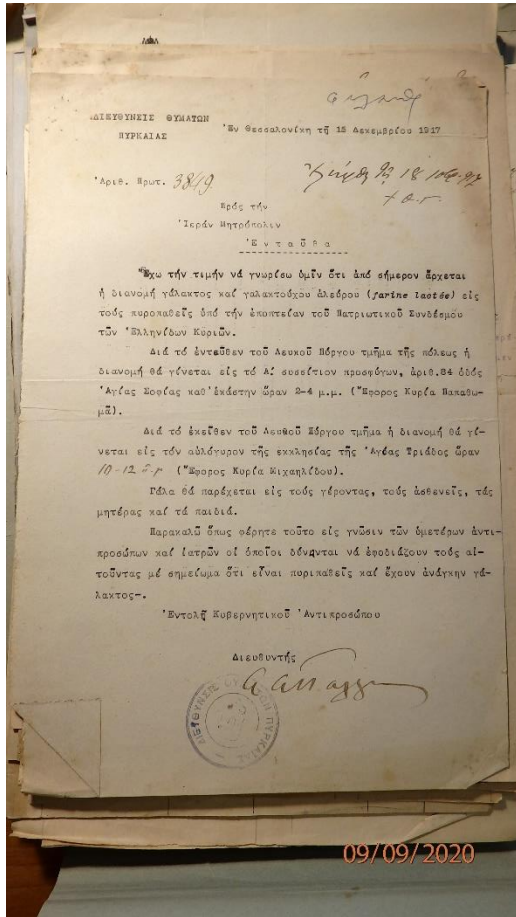 ΔΙΕΥΘΥΝΣΙΣ ΘΥΜΑΤΩΝ
ΠΥΡΚΑΙΑΣ
Ἐν Θεσσαλονίκῃ τῇ 15 Δεκεμβρίου 1917
Ἀριθ. Πρωτ. 3849
Πρός τήν
Ἱεράν Μητρόπολιν
Ἐνταῦθα
Ἔχω τήν τιμήν νά γνωρίσω ὑμῖν ὅτι ἀπό σήμερον ἄρχεται
ἡ διανομή γάλακτος καί γαλακτούχου ἀλεύρου (farine lactée) εἰς
τούς πυροπαθεῖς ὑπό τήν ἐποπτείαν τοῦ Πατριωτικοῦ Συνδέσμου
τῶν Ἑλληνίδων Κυριῶν.
Διά τό ἐντεῦθεν τοῦ Λευκοῦ Πύργου τμῆμα τῆς πόλεως ἡ
διανομή θά γίνεται εἰς τό Α΄ συσσίτιον προσφύγων, ἀριθ.84 ὁδός
Ἁγίας Σοφίας καθ' ἑκάστην ὥραν 2-4 μ.μ. (Ἔφορος Κυρία Παπαθω-
μᾶ).
Διά τό ἐκεῖθεν τοῦ Λευκοῦ Πύργου τμῆμα ἡ διανομή θά γί-
νεται εἰς τόν αὐλόγυρον τῆς ἐκκλησίας τῆς Ἁγίας Τριάδος ὥραν
10-12 π.μ (Ἔφορος Κυρία Μιχαηλίδου).
Γάλα θά παρέχεται εἰς τούς γέροντας, τούς ἀσθενεῖς, τάς
μητέρας καί τά παιδιά.
Παρακαλῶ ὅπως φέρητε τοῦτο εἰς γνῶσιν τῶν ὑμετέρων ἀντι-
προσώπων καί ἰατρῶν οἱ ὁποῖοι δύνανται νά ἐφοδιάζουν τούς αἰ-
τοῦντας μέ σημείωμα ὅτι εἶναι πυριπαθεῖς καί ἔχουν ἀνάγκην γά-
λακτος-.
Ἐντολῇ Κυβερνητικοῦ Ἀντιπροσώπου
Διευθυντής
ΔΙΕΥΘΥΝΣΙΣ ΘΥΜΑΤΩΝ ΠΥΡΚΑΙΑΣ
09/09/2020